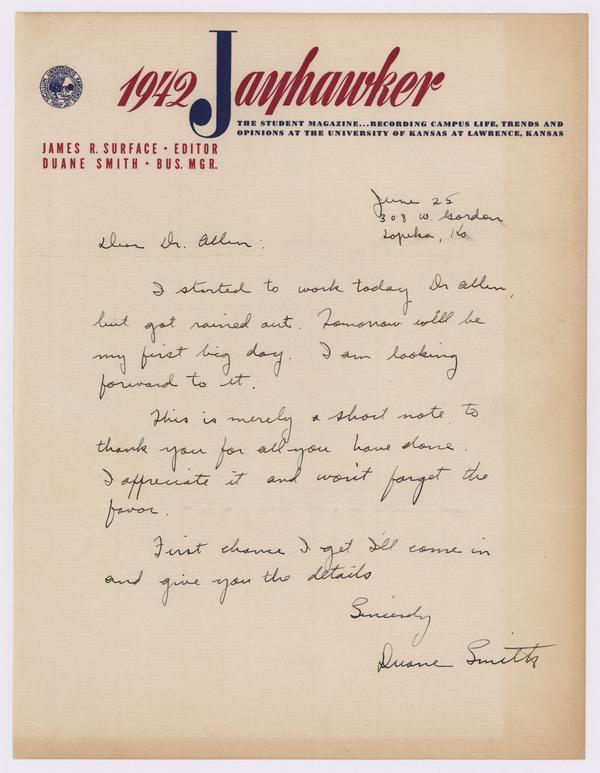 1942 Jayhawker
THE STUDENT MAGAZINE...RECORDING CAMPUS LIFE, TRENDS AND
OPINIONS AT THE UNIVERSITY OF KANSAS AT LAWRENCE, KANSAS
JAMES R. SURFACE • EDITOR
DUANE SMITH • BUS. MGR.
June 25
308 W. Gordon
Topeka, Ks
Dear Dr. Allen:
I started to work today Dr Allen,
but got rained out. Tomorrow will be
my first big day. I am looking
forward to it.
This is merely a short note to
thank you for all you have done.
I appreciate it and won't forget the
favor.
First chance I get I'll come in
and give you the details
Sincerely
Duane Smith